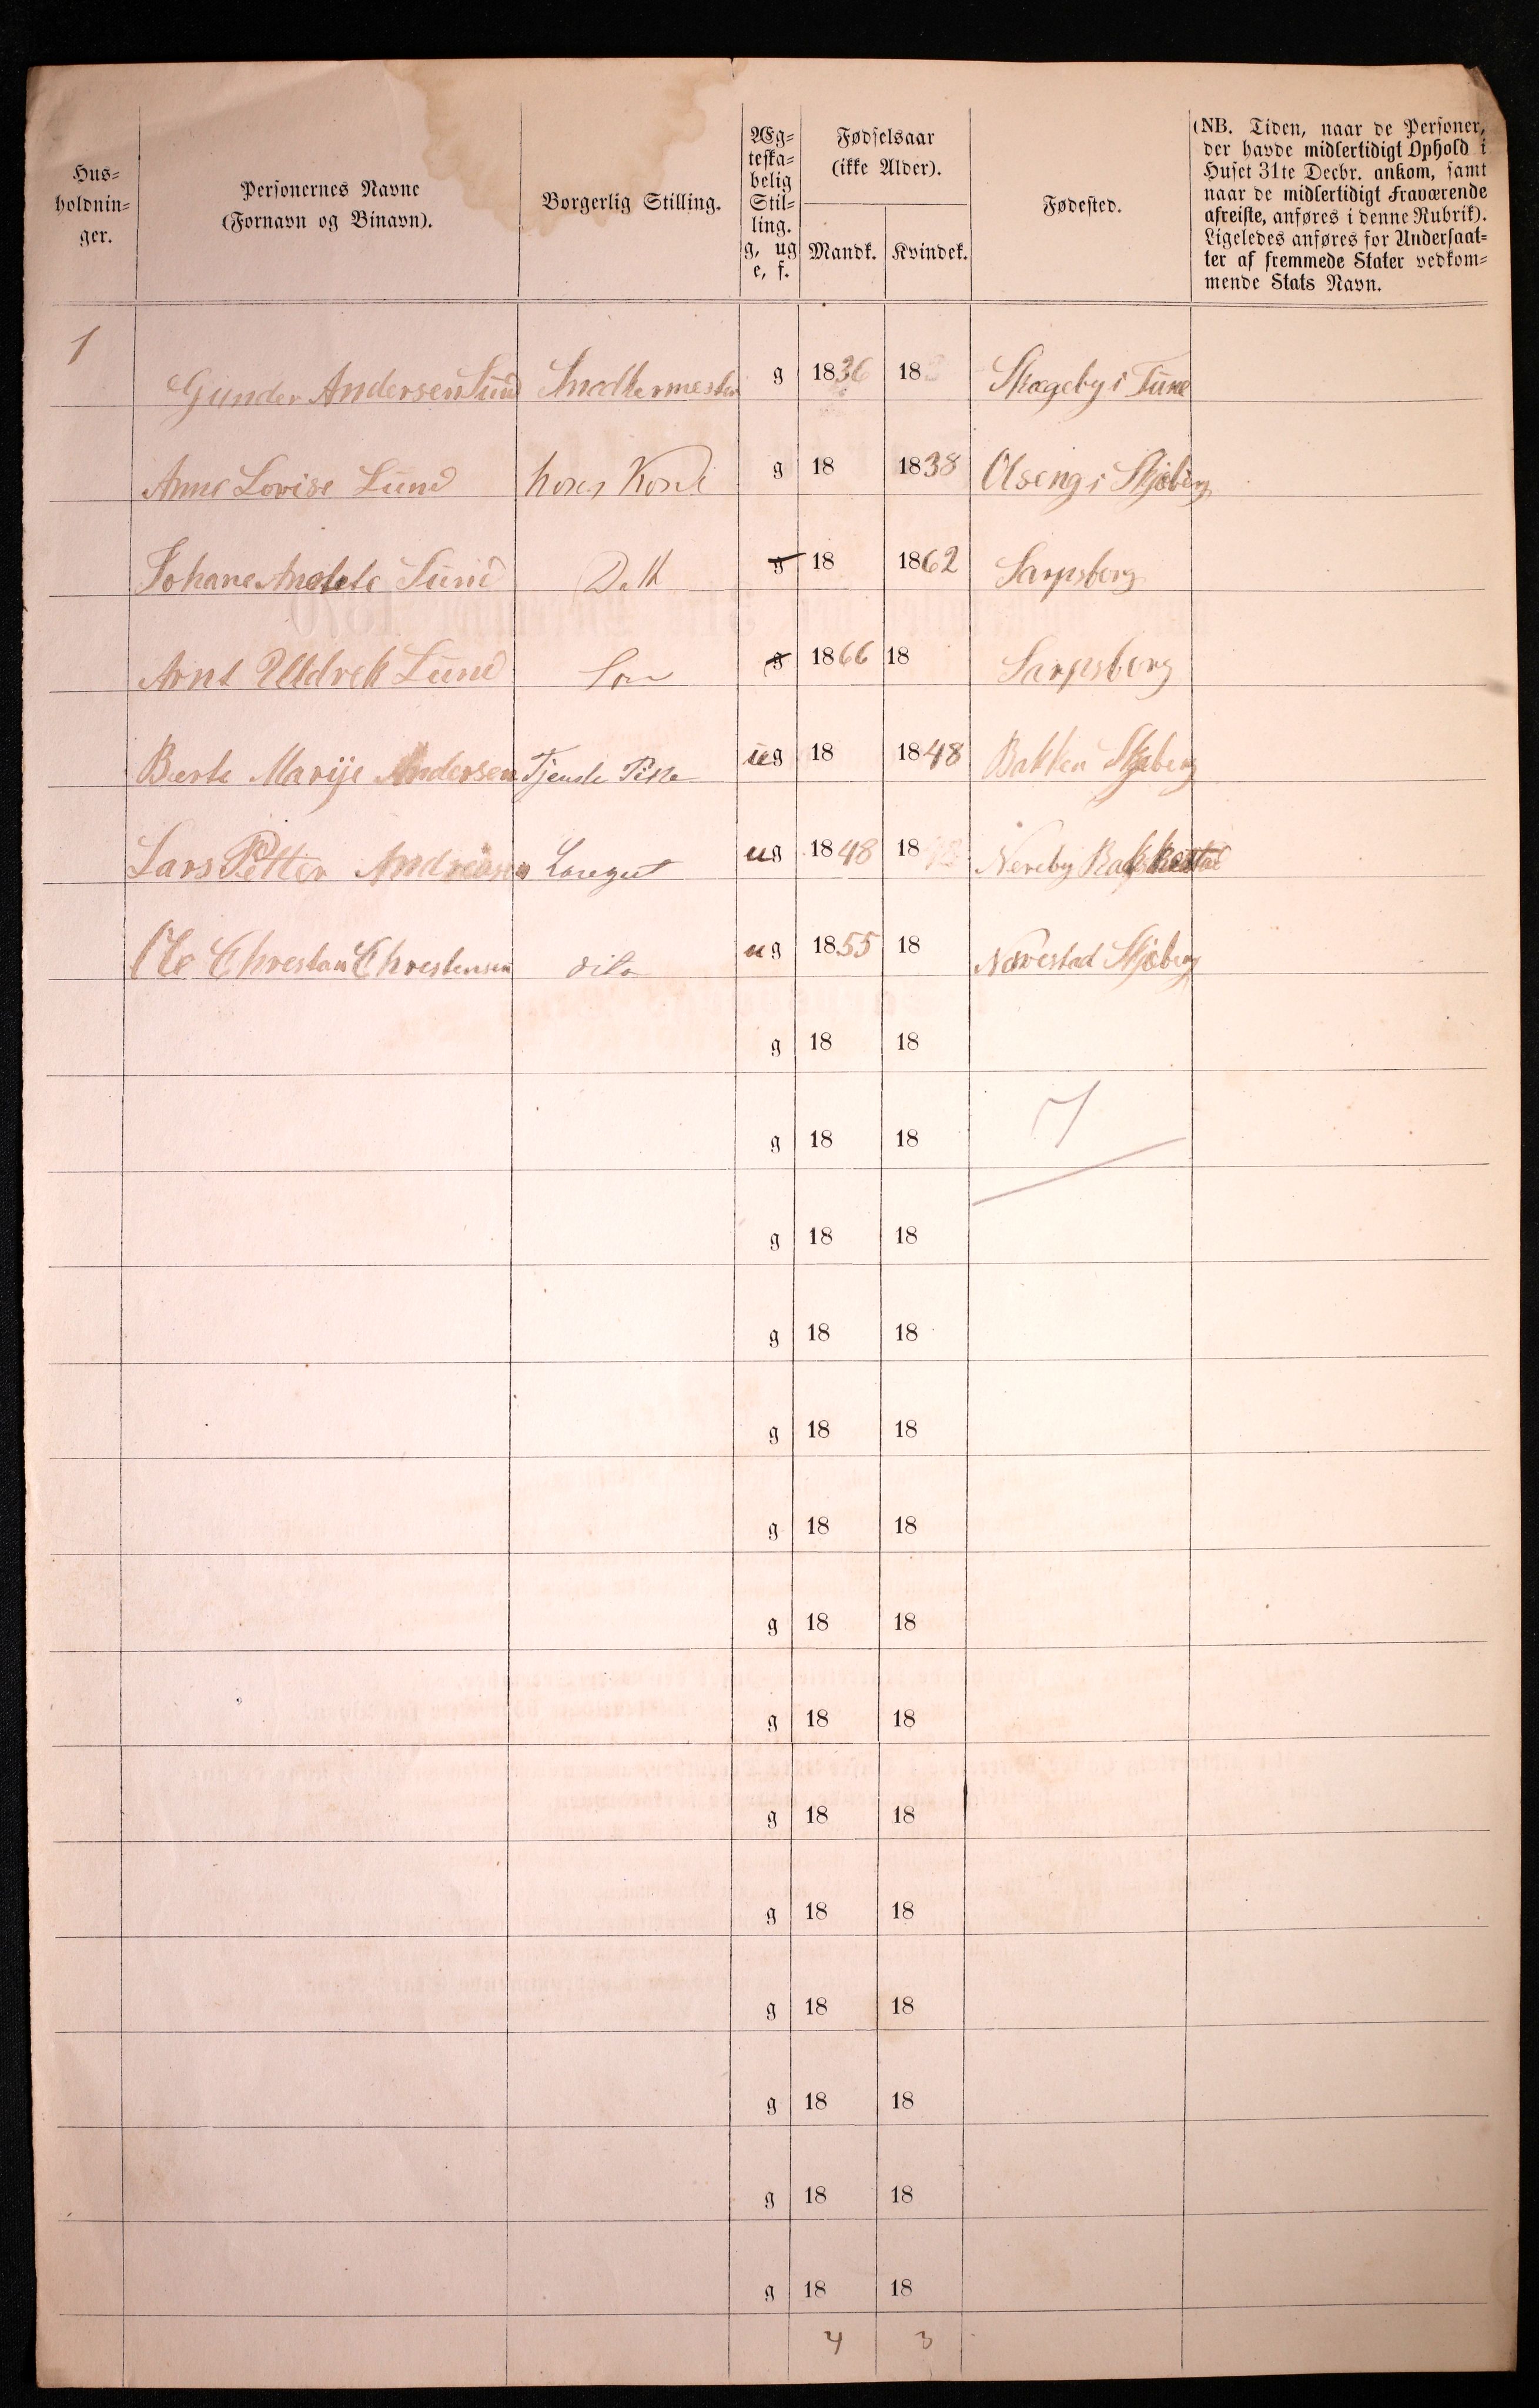 Hus=
holdnin=
ger.
Personernes Navne
(Fornavn og Binavn).
Borgerlig Stilling.
Æg=
teska=
belig
Stil=
ling.
g, ug
e, f.
Fødselsaar
(ikke Alder).
Mandk. Kvindek.
Fødested.
(NB. Tiden, naar de Personer,
der havde midlertidigt Ophold i
Huset 31te Decbr. ankom, samt
naar de midlertidigt Fraværende
afreiste, anføres i denne Rubrik).
Ligeledes anføres for Undersaat=
ter af fremmede Stater vedkom=
mende Stats Navn.
1 Gunder Andersen Lund Snedkermester g 1836 18 Skogeby i Tune
Anne Lovise Lund hoses Kone g 18 1838 Olseng i Skjeberg
Johane Lund Datt g 18 1862 Sarpsborg
Arnt Uldrek Lund Son g 1866 18 Sarpsborg
Berte Marije Andersen Tjenste Pike ug 18 1848 Bakken Skjeberg
Lars Petter Andreasen Laregut ug 1848 18 Nereby
Ole Chrestan Chrestensen dito ug 1855 18 Navestad Skjeberg
g 18 18
g 18 18 7
g 18 18
g 18 18
g 18 18
g 18 18
g 18 18
g 18 18
g 18 18
g 18 18
g 18 18
g 18 18
g 18 18
g 18 18
4 3